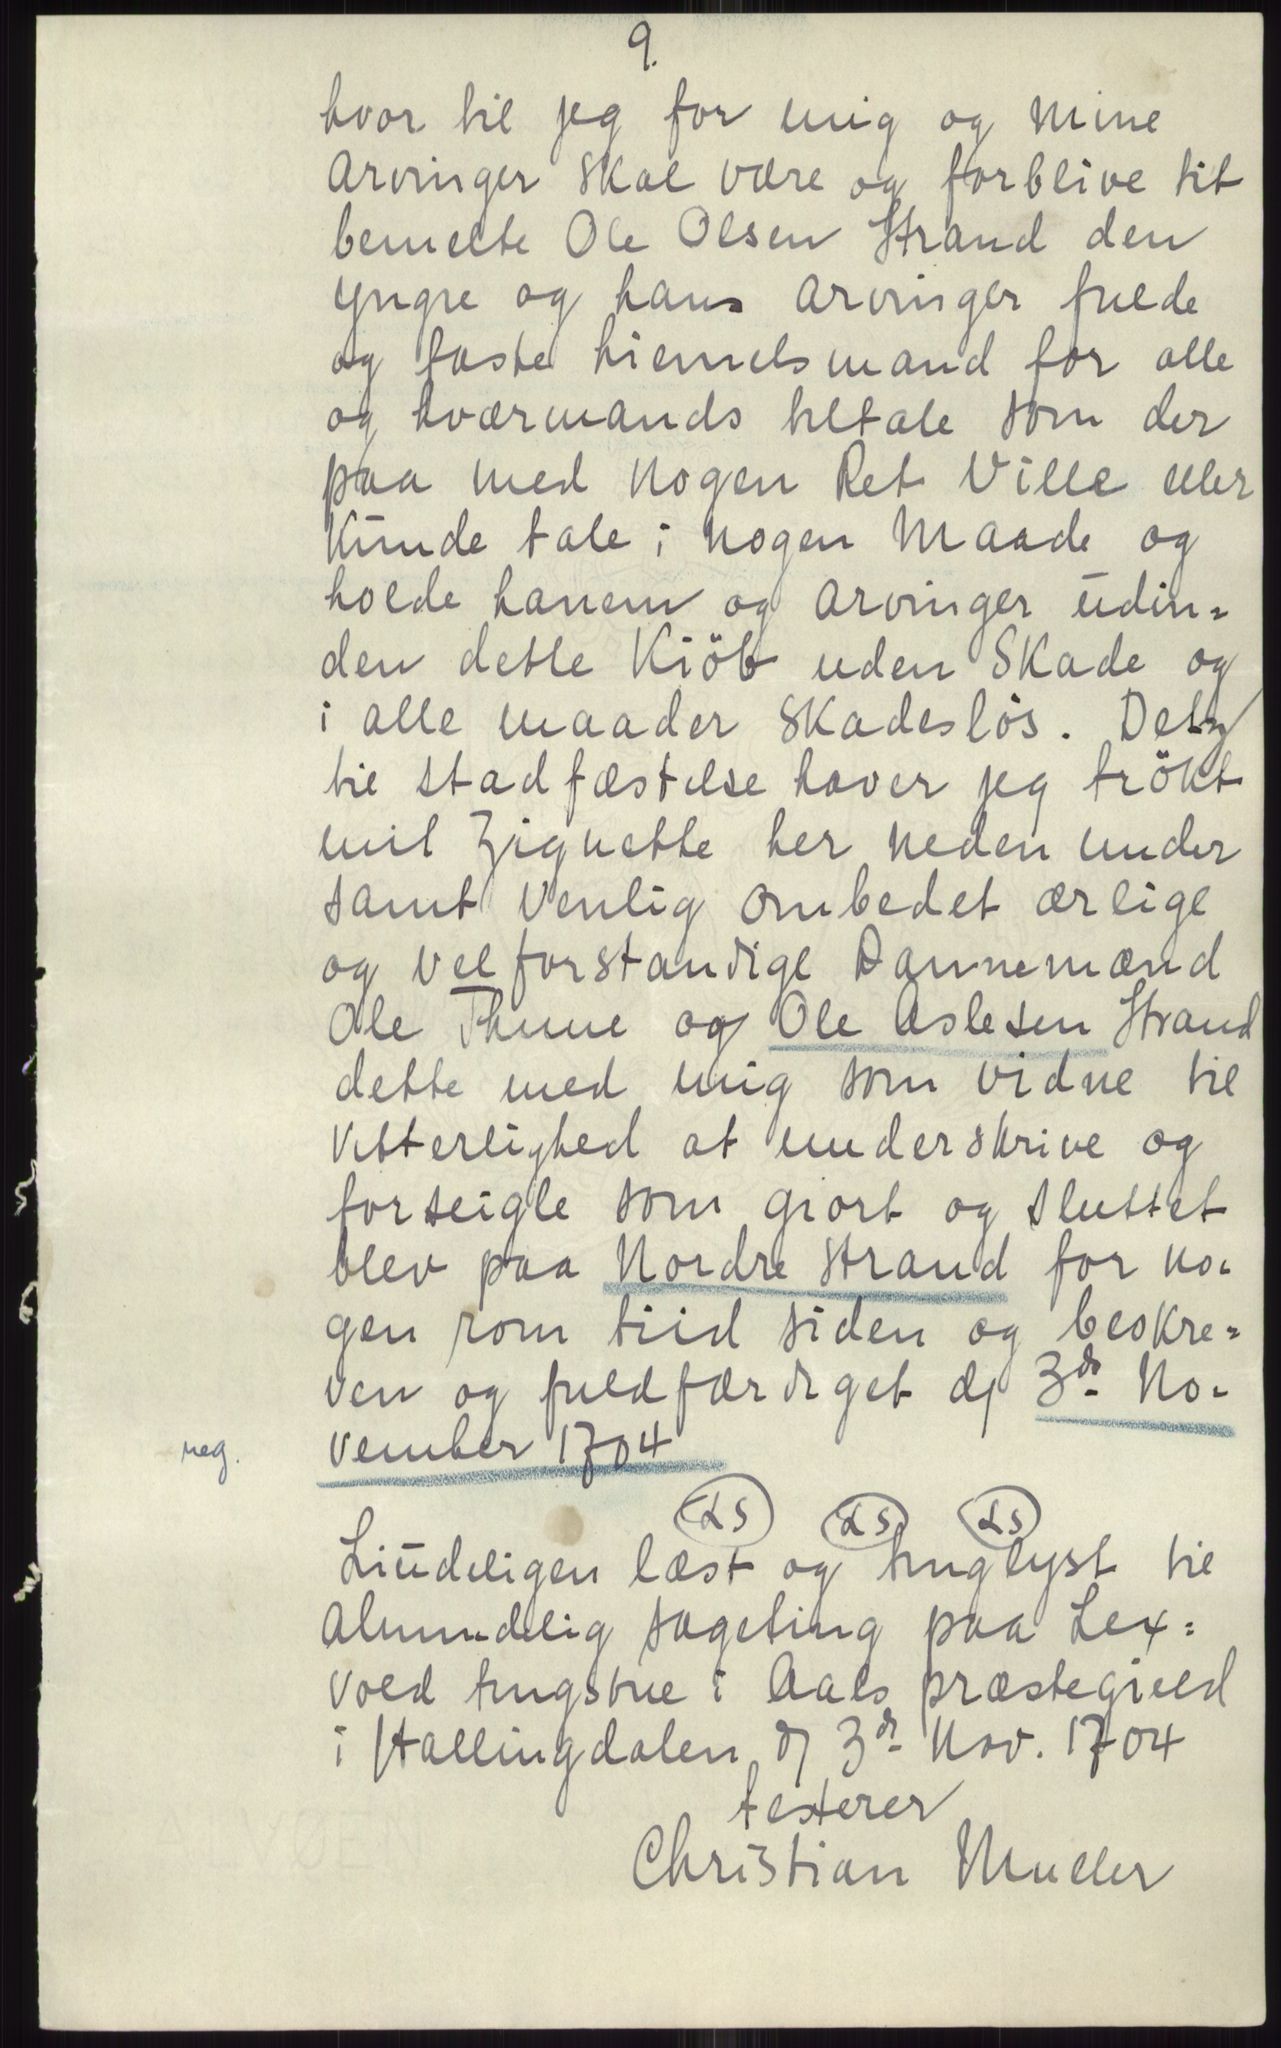 9.
hvor til jeg for mig og Mine
Arvinger Skal være og forblive tit
bemelte Ole Olsen Strand den
Yngre og hans Arvinger fulde
og faste hiemelsmand for alle
og hværmands tiltale som der
paa med Nogen Ret Ville eller
Kunde tale i Nogen Maade og
holde hanem og Arvinger udin=
den dette Kiöb uden Skade og
i alle maader Skadeslös. Detz
til Stadfæstelse haver jeg trökt
mit Zignette her Neden under
samt Venlig ombedet ærlige
og Velforstandige Dannemænd
Ole Thune og Ole Aslesen Strand
dette med mig som vidne til
Vitterlighed at underskrive og
forseigle som giort og Sluttet
blev paa Nordre Strand for No-
gen rom tiid siden og beskre=
ven og fuldfærdiget d 3de No-
reg. vember 1704
LS LS LS
Liudeligen læst og tinglyst til
Almindelig Sageting paa Lex=
vold tingstue i Aals præstegield
i Hallingdalen d 3de Nov. 1704
testerer
Christian Muller